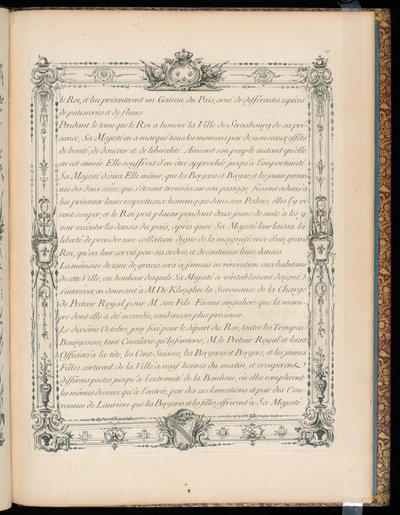 le Roi, et lui présenterent un Gateau du Païs, orné de différentes especes
de patisseries et de fleurs.
Pendant le tems que le Roi a honoré la Ville de Strasbourg de sa pré-
sence, Sa Majesté en a marqué tous les momens par de nouveaux effets
de bonté, de douceur et de liberalité. Aimant son peuple autant qu'elle
en est aimée. Elle souffroit d'en être approchée jusqu'à l'importunité.
Sa Majesté désira Elle même, que les Bergeres et Bergers, et les jeunes person-
nes des deux sexes, qui s'étoient trouvées sur son passage fussent admis à
lui présenter leurs respectueux hommages dans son Palais; elles l'y vi-
rent souper, et le Roi prit plaisir pendant deux jours de suite à les y
voir exécuter les danses du païs, après quoi Sa Majesté leur laissa la
liberté de prendre une collation, digne de la magnificence d'un grand
Roi, qu'on leur servit par ses ordres, et de continuer leurs danses.
La mémoire de tant de graces sera à jamais en vénération aux habitans
de cette Ville, au bonheur desquels Sa Majesté a véritablement daigné
s'interesser, en donnant à M. De Klinglin la Survivance de la Charge
de Preteur Royal pour M. son Fils. Faveur singuliere que la mani-
ere dont elle a été accordée, rend encore plus précieuse.
Le dixiéme Octobre, jour fixé pour le départ du Roi, toutes les Troupes
Bourgeoises, tant Cavalerie qu'Infanterie, M. le Preteur Royal et leurs
Officiers à la tête, les Cent-Suisses, les Bergeres et Bergers, et les jeunes
Filles sortirent de la Ville à neuf heures du matin, et occuperent
différens postes jusqu'à l'extrémité de la Banlieue, où elles remplirent
les mêmes devoirs qu'à l'entrée, par des acclamations et par des Cou-
ronnes de Lauriers que les Bergeres et les filles offrirent à Sa Majesté.